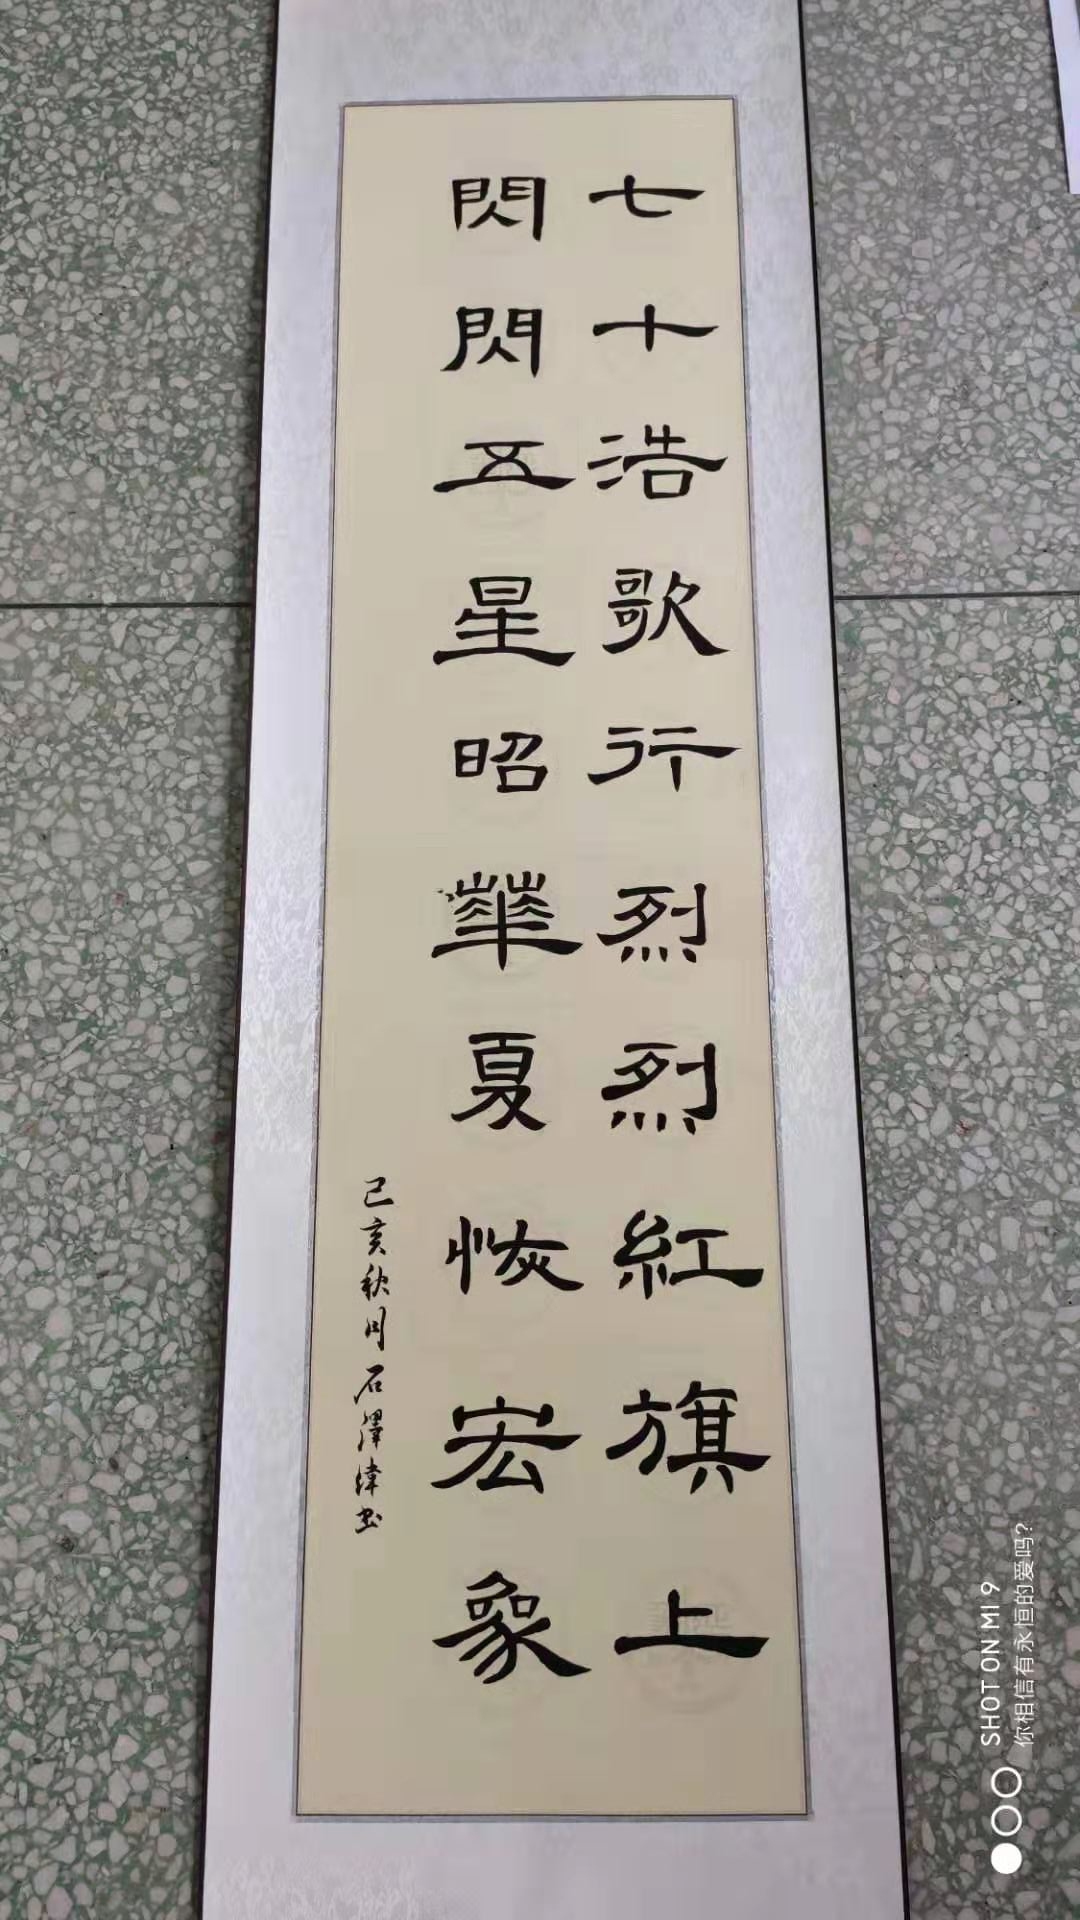 七十浩歌行烈烈紅旗上
閃閃五星昭華夏恢宏象
己亥秋月石澤偉書
SHOT ON MI 9
你相信有永恒的爱吗?